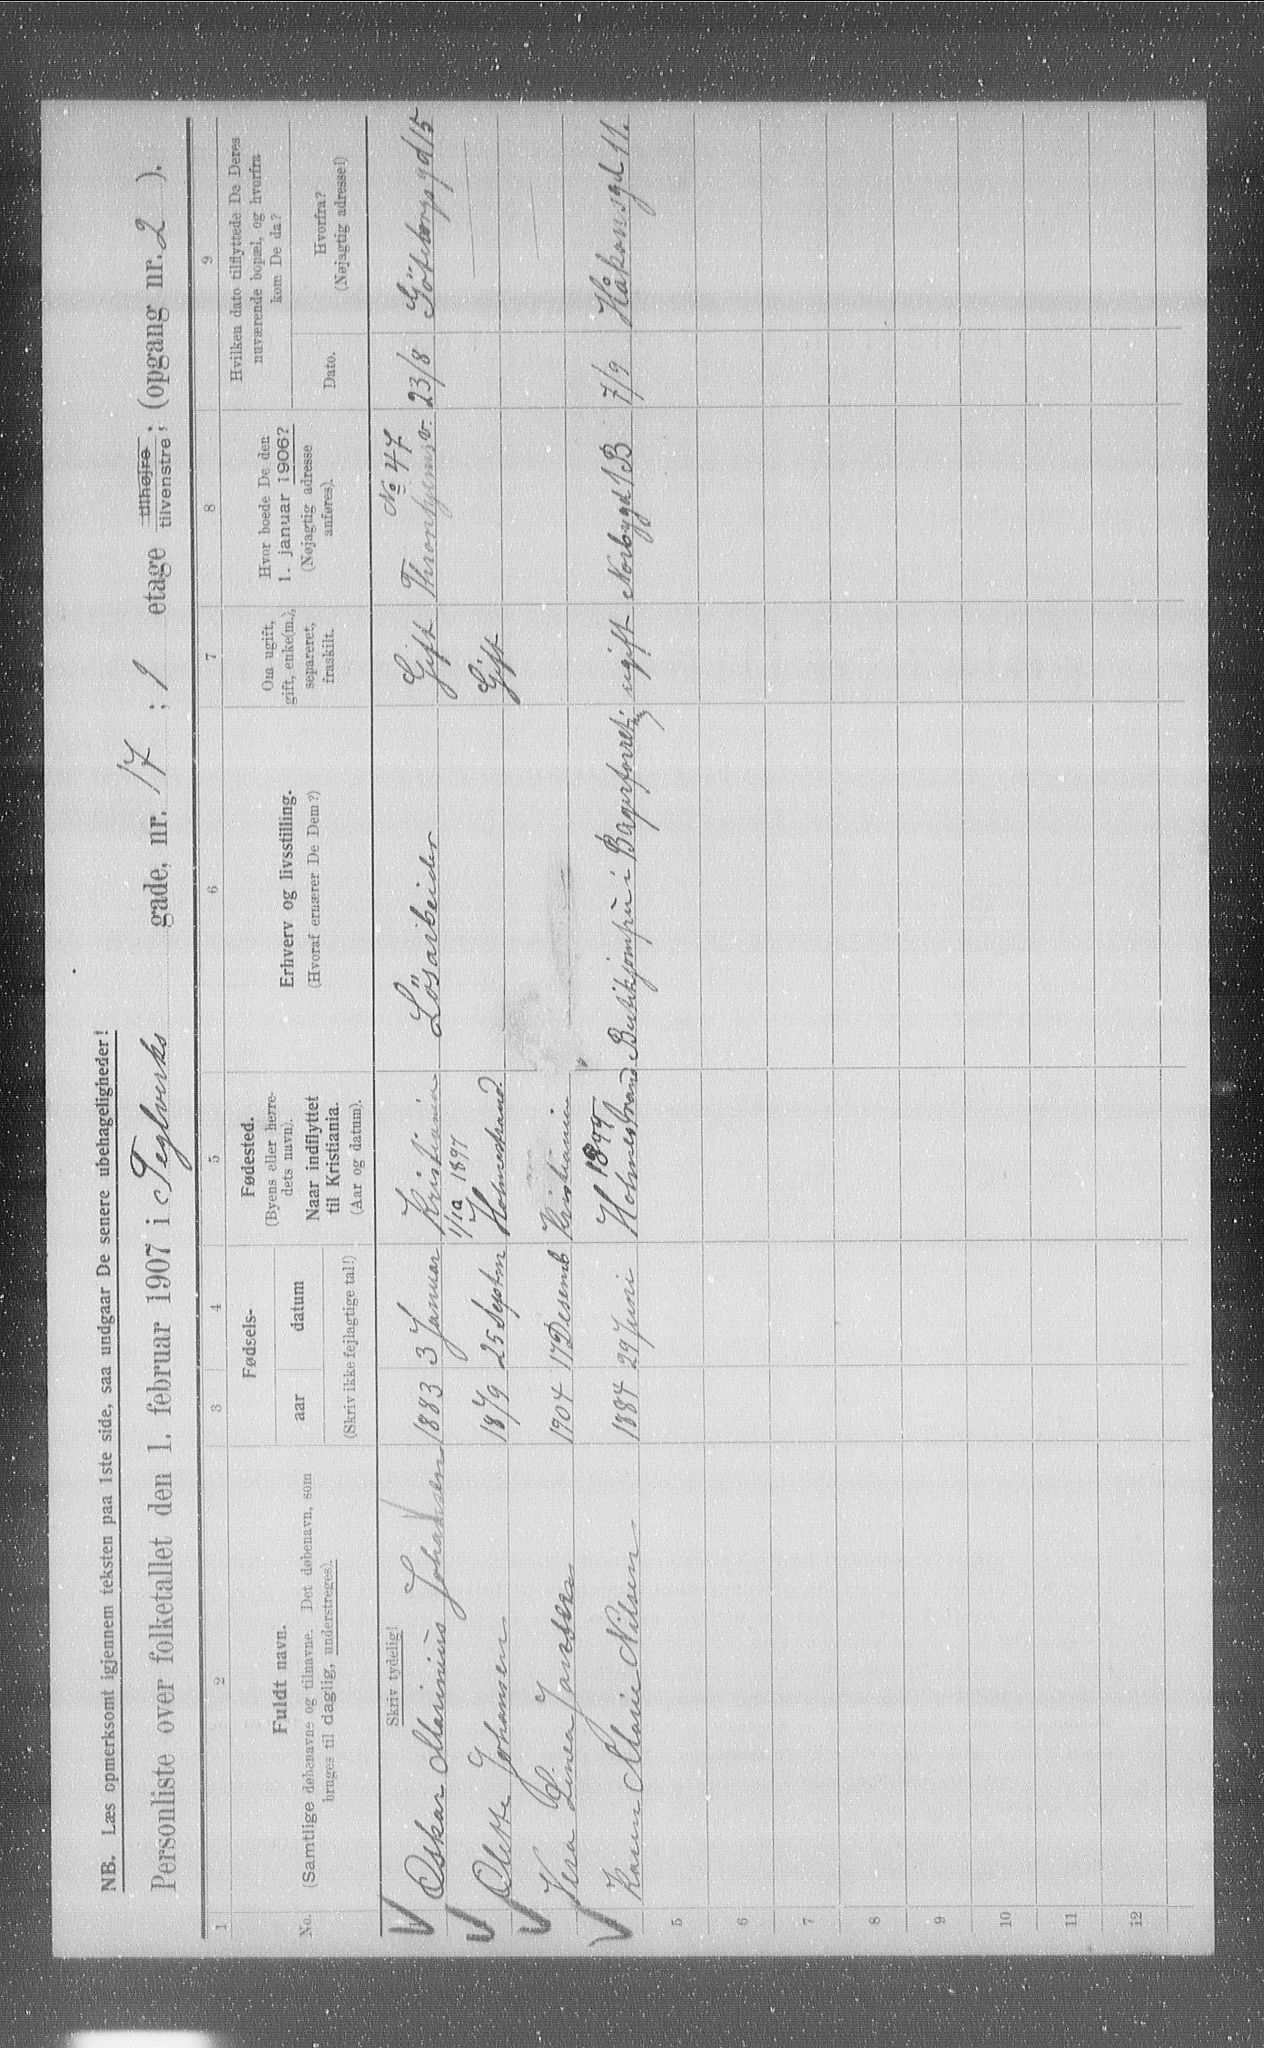 NB. Læs opmerksomt igjennem teksten paa 1ste side, saa undgaar De senere ubehageligheder!
Personliste over folketallet den 1. februar 1907 i Teglverks gade, nr. 17 ; 1 etage tilhøjre tilvenstre ; (opgang nr. 2 ).
1 2 3 4 5 6 7 8 9
No.
Fuldt navn.
(Samtlige døbenavne og tilnavne. Det døbenavn, som
bruges til daglig, understreges).
Skriv tydelig!
Fødsels-
aar datum
(Skriv ikke fejlagtige tal!)
Fødested.
(Byens eller herre-
dets navn).
Naar indflyttet
til Kristiania.
(Aar og datum).
Erhverv og livsstilling.
(Hvoraf ernærer De Dem?)
Om ugift,
gift, enke(m.),
separeret,
fraskilt.
Hvor boede De den
1. januar 1906?
(Nøjagtig adresse
anføres).
Hvilken dato tilflyttede De Deres
nuværende bopæl, og hvorfra
kom De da?
Dato.
Hvorfra?
(Nøjagtig adresse!)
No 47
Oskar Marinius Johansen 1883 3 Januar Kristiania Lösarbeider Gift Thronhjemsv. 23/8 Göteborgsgd 15
1897
Olette Johansen 1879 25 Septem Holmestrand. Gift
Vera Linea Jansen 1904 17 Desemb Kristiania
Karen Marie Nilsen 1884 29 Juni Holmestrand Butikjomfru i Bagerforretning ugift Norbygd 1B 7/9 Håkonsgd 11.
5
6
7
8
9
10
11
12